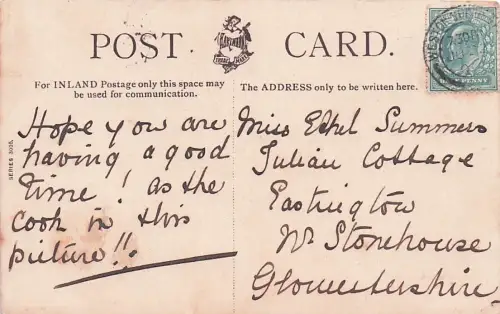 POST CARD.
For INLAND Postage only this space may
be used for communication.
The ADDRESS only to be written here.
Hope you are
having a good
time! as the
cook in this
picture!!
Miss Ethel Summers
Julian Cottage
Eastington
Nr Stonehouse
Gloucestershire.